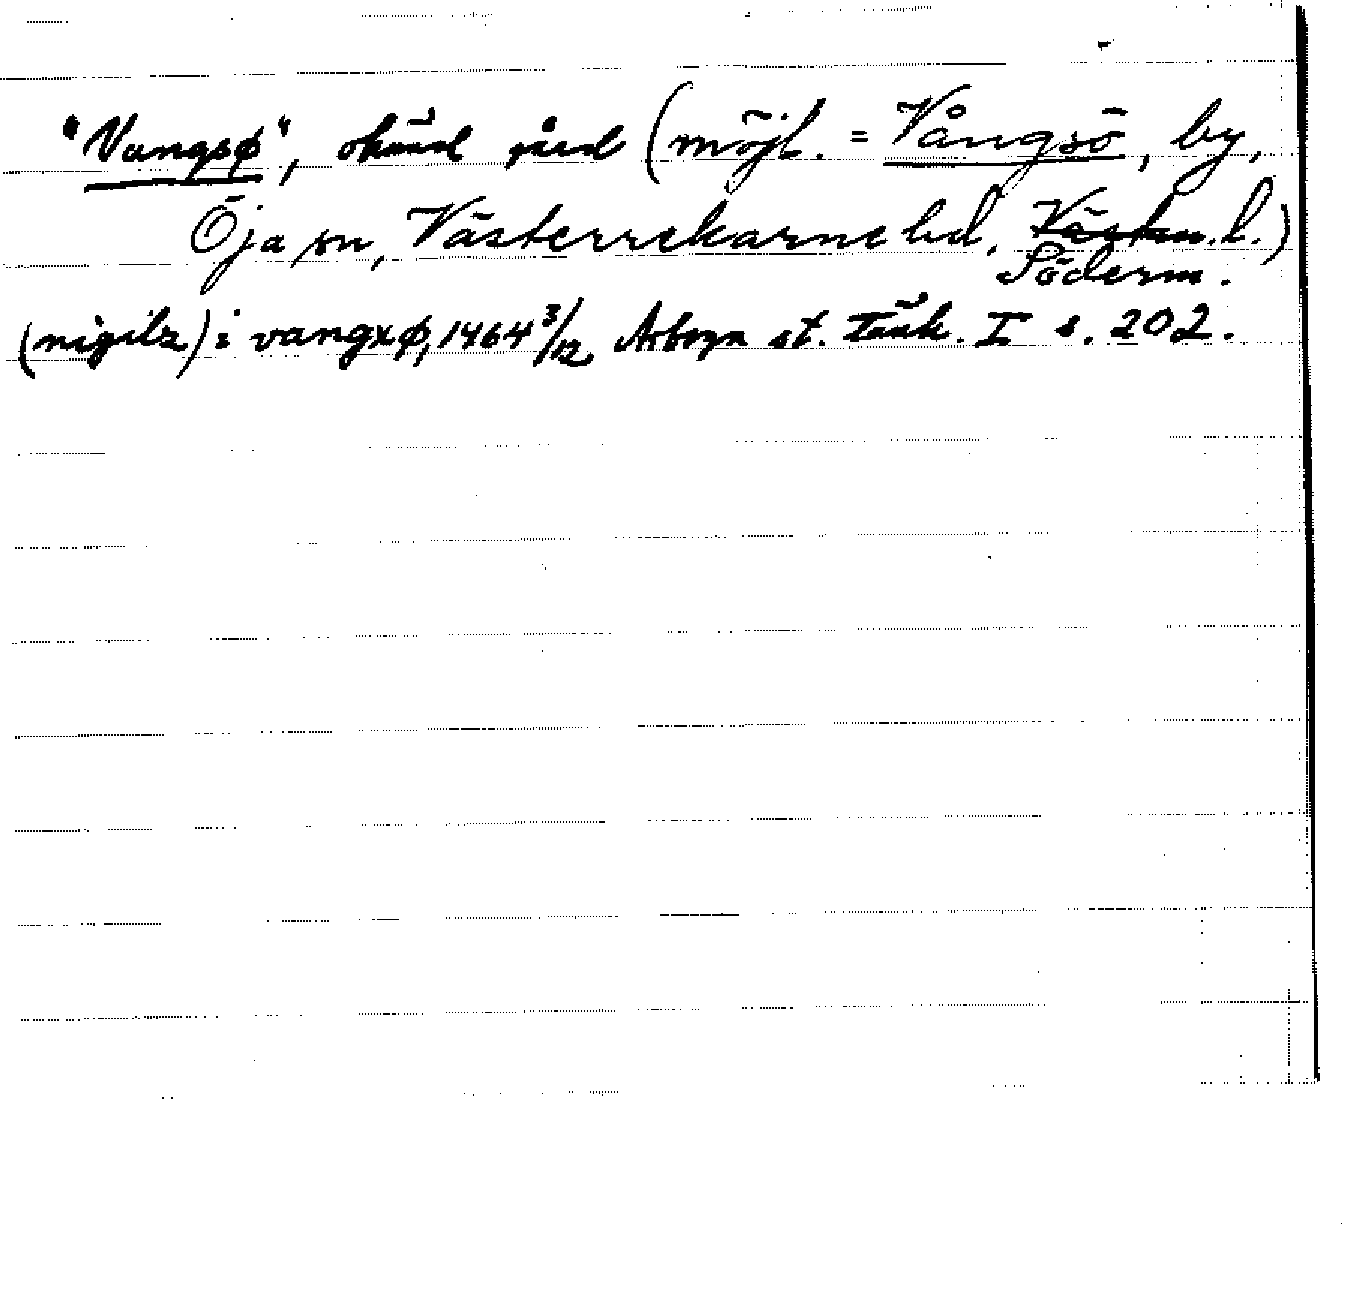 "Vangsø", okänd gård (möjl. = Vångsö, by,
Öja sn, Västerrekarne hd, Västm. l.)
Söderm.
(nigilz) i vangxø, 1464 3/12 Arboga st. tänk. I s. 202.